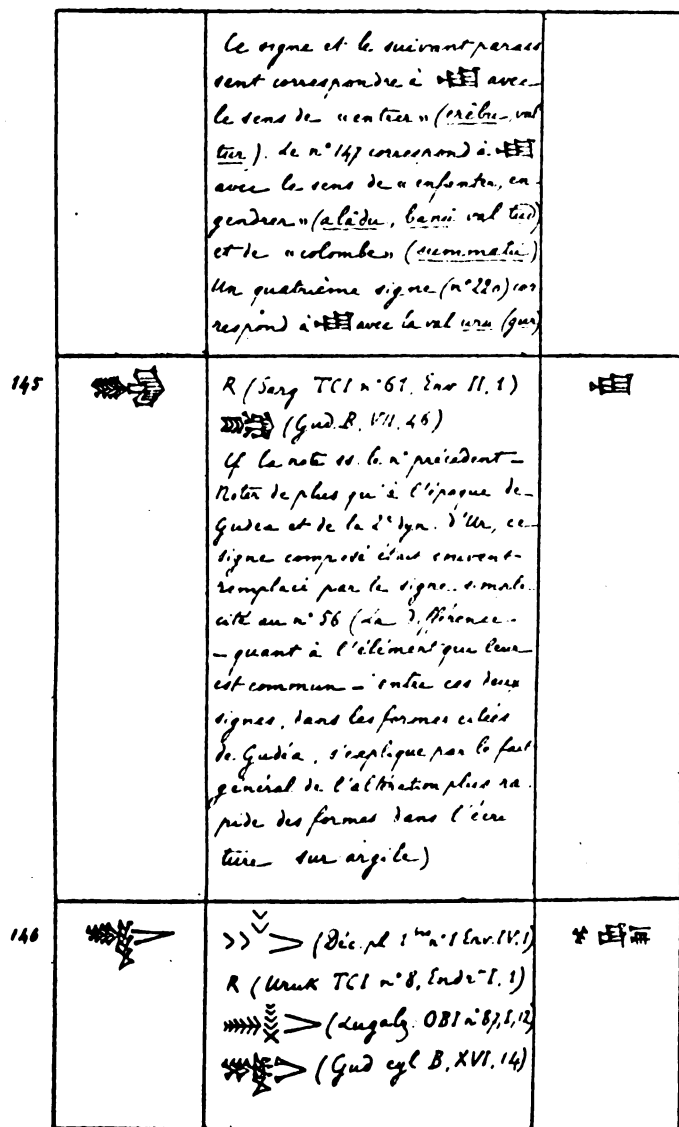 Ce signe et le suivant parais
sent correspondre à avec
le sens de «entrer» (erêbu, val
tur). Le n° 147 correspond à
avec le sens de «enfanter, en
gendrer» (alâdu, banû val tud)
et de «colombe» (summatu)
Un quatrième signe (n° 220) cor
respond à avec la val uru (gur)
145
R (Sarg TCI n° 61, Env II, 1)
(Gud. B, VII, 46)
Cf la note ss. le n° précédent —
Noter de plus qu'à l'époque de
Gudéa et de la 2e dyn. d'Ur, ce
signe composé était souvent
remplacé par le signe simple
cité au n° 56 (La différence
— quant à l'élément que leur
est commun — entre ces deux
signes, dans les formes citées
de Gudéa, s'explique par le fait
général de l'altération plus ra
pide des formes dans l'écri
ture sur argile)
146
(Déc. pl 1 n° 1 Env. IV, 1)
R (Uruk TCI n° 8, Endr I, 1)
(Lugalz. OBI n° 87, I, 12)
(Gud cyl B, XVI, 14)